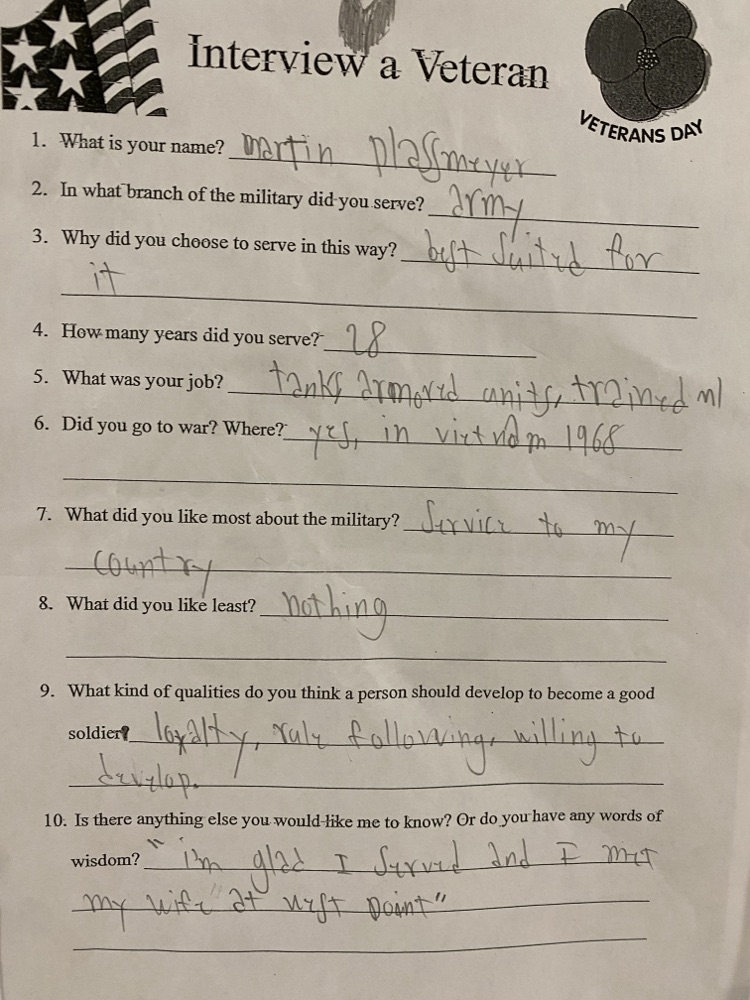 Interview a Veteran
VETERANS DAY
1. What is your name? martin plassmeyer
2. In what branch of the military did you serve? army
3. Why did you choose to serve in this way? best suited for
it
4. How many years did you serve? 28
5. What was your job? tanks, armored units, trained
6. Did you go to war? Where? yes, in vietnam 1968
7. What did you like most about the military? service to my
country
8. What did you like least? nothing
9. What kind of qualities do you think a person should develop to become a good
soldier? loyalty, rule following, willing to
develop.
10. Is there anything else you would like me to know? Or do you have any words of
wisdom? "i'm glad I served and I met
my wife at west point"